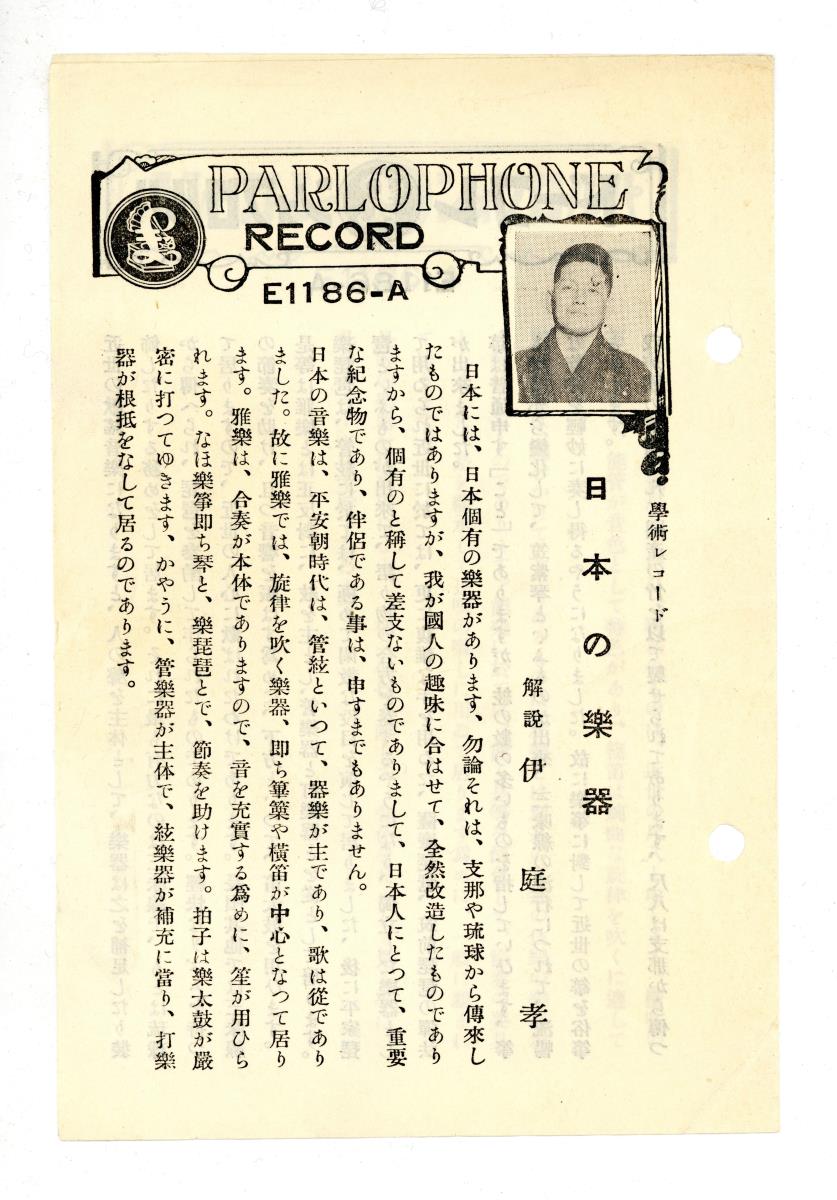 PARLOPHONE
RECORD
E1186-A
學術レコード
日本の樂器
解說 伊庭孝
日本には、日本個有の樂器があります、勿論それは、支那や琉球から傳來し
たものではありますが、我が國人の趣味に合はせて、全然改造したものであり
ますから、個有のと稱して差支ないものでありまして、日本人にとつて、重要
な紀念物であり、伴侶である事は、申すまでもありません。
日本の音樂は、平安朝時代は、管絃といつて、器樂が主であり、歌は從であり
ました。故に雅樂では、旋律を吹く樂器、即ち篳篥や橫笛が中心となつて居り
ます。雅樂は、合奏が本体でありますので、音を充實する爲めに、笙が用ひら
れます。なほ樂箏即ち琴と、樂琵琶とで、節奏を助けます。拍子は樂太鼓が嚴
密に打つてゆきます、かやうに、管樂器が主体で、絃樂器が補充に當り、打樂
器が根抵をなして居るのであります。